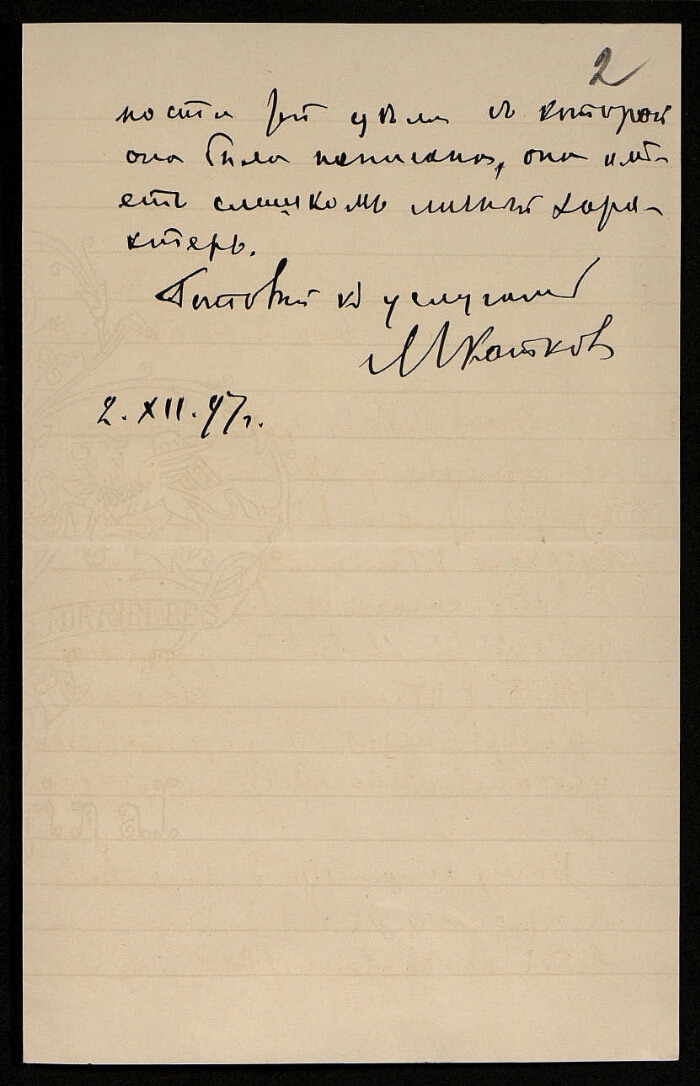 2
ности той цѣли съ которой
она была написана, она имѣ-
етъ слишкомъ личный хара-
ктеръ.
Готовый къ услугамъ
МКатков
2. XII. 97 г.
MIRRIELEES